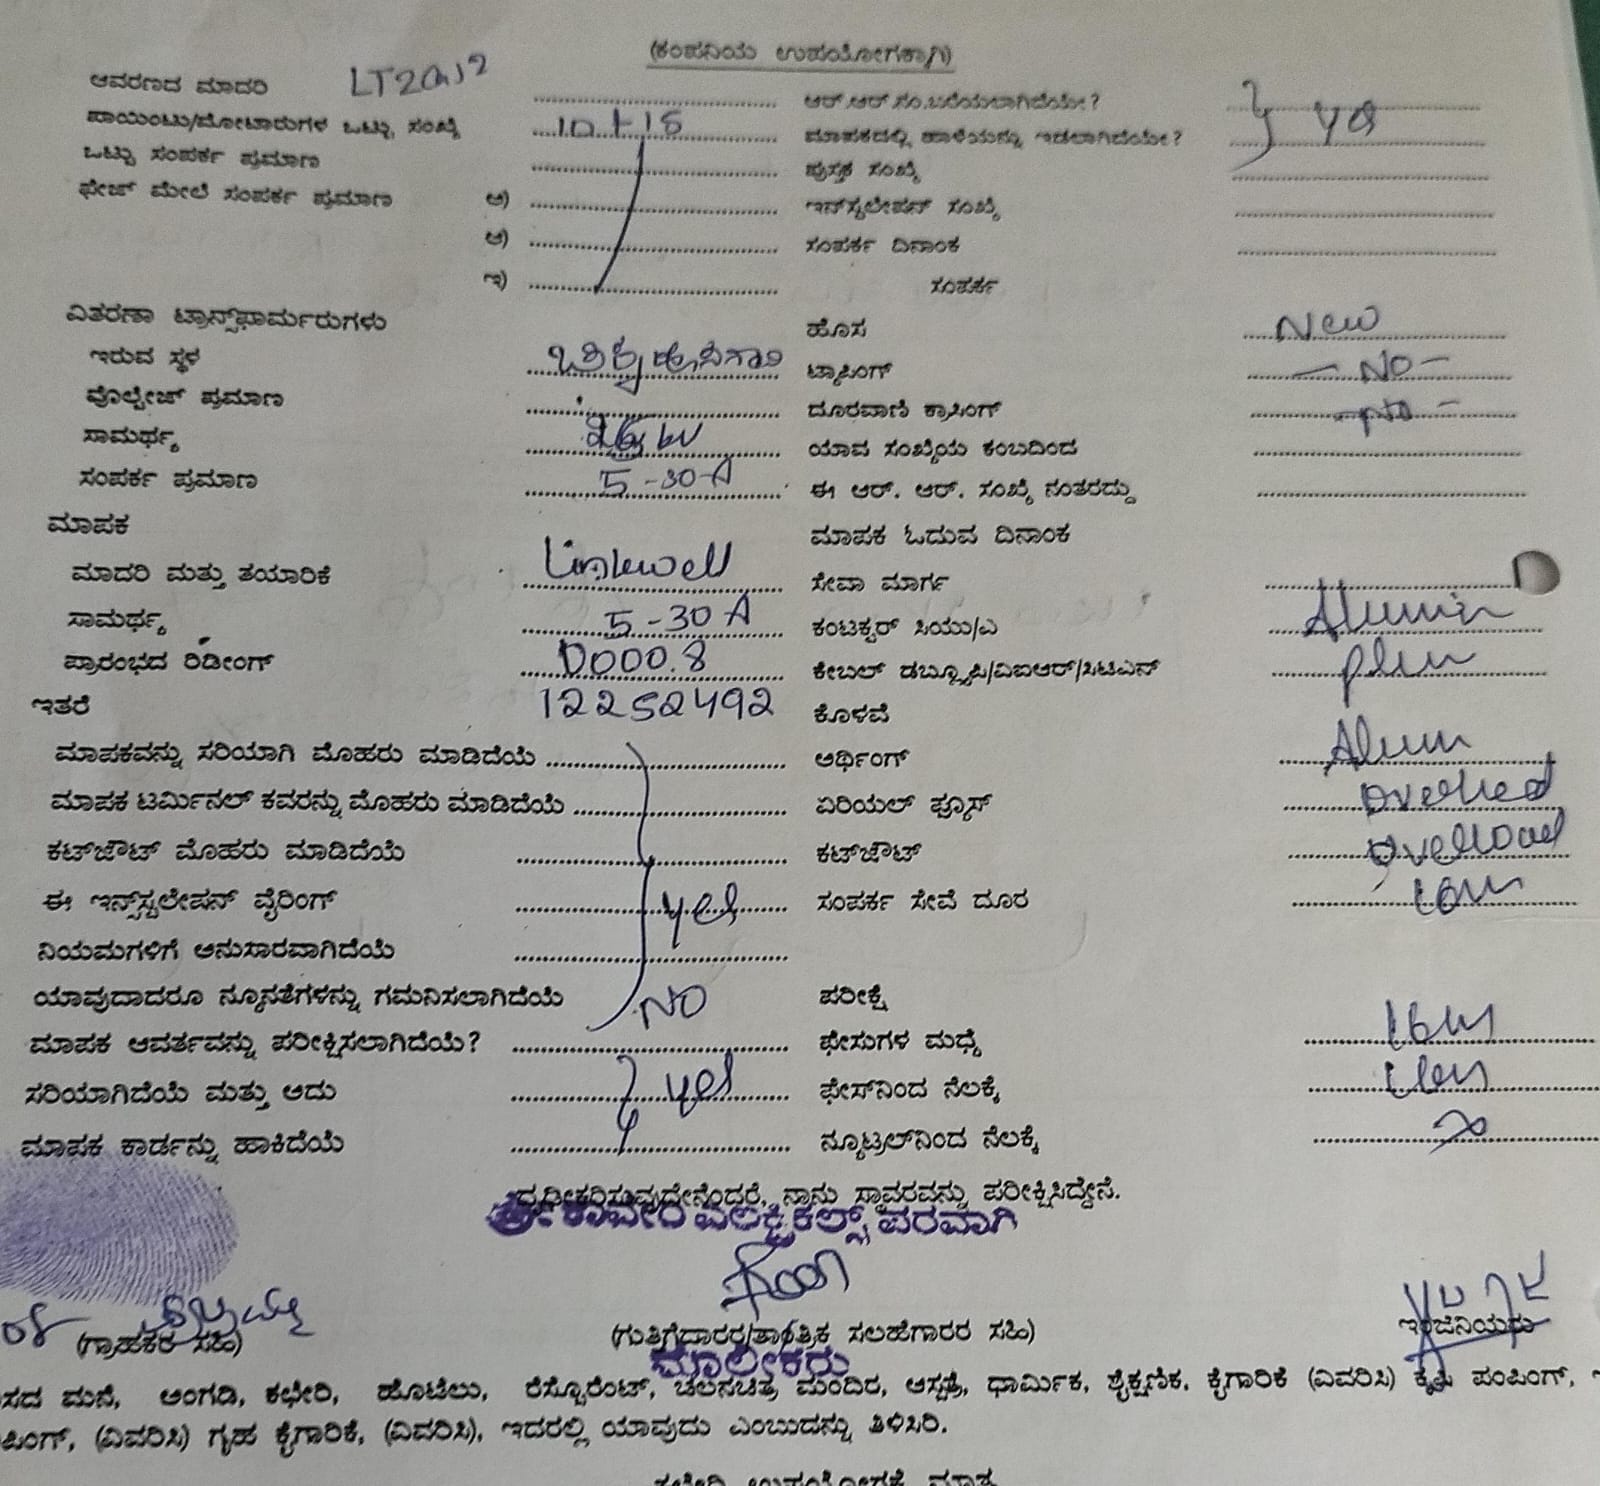 (ಕಂಪನಿಯ ಉಪಯೋಗಕ್ಕಾಗಿ)
ಆವರಣದ ಮಾದರಿ ಆರ್.ಆರ್.ಸಂ.ಬರೆಯಲಾಗಿದೆಯೇ?
ಪಾಯಿಂಟು/ಮೋಟಾರುಗಳ ಒಟ್ಟು ಸಂಖ್ಯೆ ಮಾಪಕದಲ್ಲಿ ಹಾಳೆಯನ್ನು ಇಡಲಾಗಿದೆಯೇ?
ಒಟ್ಟು ಸಂಪರ್ಕ ಪ್ರಮಾಣ ಪುಸ್ತಕ ಸಂಖ್ಯೆ
ಫೇಜ್ ಮೇಲೆ ಸಂಪರ್ಕ ಪ್ರಮಾಣ ಅ) ಇನ್‌ಸ್ಟಲೇಷನ್ ಸಂಖ್ಯೆ
ಆ) ಸಂಪರ್ಕ ದಿನಾಂಕ
ಇ) ಸಂಪರ್ಕ
ವಿತರಣಾ ಟ್ರಾನ್ಸ್‌ಫಾರ್ಮರುಗಳು ಹೊಸ New
ಇರುವ ಸ್ಥಳ ಟ್ಯಾಪಿಂಗ್ - NO -
ವೊಲ್ಟೇಜ್ ಪ್ರಮಾಣ ದೂರವಾಣಿ ಕ್ರಾಸಿಂಗ್ - NO -
ಸಾಮರ್ಥ್ಯ ಯಾವ ಸಂಖ್ಯೆಯ ಕಂಬದಿಂದ
ಸಂಪರ್ಕ ಪ್ರಮಾಣ 5-30 A ಈ ಆರ್. ಆರ್. ಸಂಖ್ಯೆ ನಂತರದ್ದು
ಮಾಪಕ ಮಾಪಕ ಓದುವ ದಿನಾಂಕ
ಮಾದರಿ ಮತ್ತು ತಯಾರಿಕೆ Linkwell ಸೇವಾ ಮಾರ್ಗ
ಸಾಮರ್ಥ್ಯ 5-30 A ಕಂಟಕ್ಟರ್ ಸಿಯು/ಎ
ಪ್ರಾರಂಭದ ರಿಡೀಂಗ್ 0000.8 ಕೇಬಲ್ ಡಬ್ಲ್ಯೂಪಿ/ವಿಐಆರ್/ಸಿಟಿಎನ್
ಇತರೆ 12252492 ಕೊಳವೆ
ಮಾಪಕವನ್ನು ಸರಿಯಾಗಿ ಮೊಹರು ಮಾಡಿದೆಯೆ ಅರ್ಥಿಂಗ್
ಮಾಪಕ ಟರ್ಮಿನಲ್ ಕವರನ್ನು ಮೊಹರು ಮಾಡಿದೆಯೆ ಏರಿಯಲ್ ಫ್ಯೂಸ್
ಕಟ್‌ಔಟ್ ಮೊಹರು ಮಾಡಿದೆಯೆ ಕಟ್‌ಔಟ್
ಈ ಇನ್ಸ್‌ಸ್ಟಲೇಷನ್ ವೈರಿಂಗ್ yes ಸಂಪರ್ಕ ಸೇವೆ ದೂರ
ನಿಯಮಗಳಿಗೆ ಅನುಸಾರವಾಗಿದೆಯೆ
ಯಾವುದಾದರೂ ನ್ಯೂನತೆಗಳನ್ನು ಗಮನಿಸಲಾಗಿದೆಯೆ NO ಪರೀಕ್ಷೆ
ಮಾಪಕ ಆವರ್ತವನ್ನು ಪರೀಕ್ಷಿಸಲಾಗಿದೆಯೆ? ಫೇಸುಗಳ ಮಧ್ಯೆ
ಸರಿಯಾಗಿದೆಯೆ ಮತ್ತು ಅದು yes ಫೇಸ್‌ನಿಂದ ನೆಲಕ್ಕೆ
ಮಾಪಕ ಕಾರ್ಡನ್ನು ಹಾಕಿದೆಯೆ ನ್ಯೂಟ್ರಲ್‌ನಿಂದ ನೆಲಕ್ಕೆ
ದೃಢೀಕರಿಸುವುದೇನೆಂದರೆ, ನಾನು ಸ್ಥಾವರವನ್ನು ಪರೀಕ್ಷಿಸಿದ್ದೇನೆ.
ಶ್ರೀ ಕಾವೇರಿ ಎಲೆಕ್ಟ್ರಿಕಲ್ಸ್ ಪರವಾಗಿ
(ಗ್ರಾಹಕರ ಸಹಿ) (ಗುತ್ತಿಗೆದಾರರ/ತಾಂತ್ರಿಕ ಸಲಹೆಗಾರರ ಸಹಿ) ಇಂಜಿನಿಯರು
ಮಾಲೀಕರು
ಮನೆ, ಅಂಗಡಿ, ಕಛೇರಿ, ಹೊಟೆಲು, ರೆಸ್ಟೊರೆಂಟ್, ಚಲನಚಿತ್ರ ಮಂದಿರ, ಆಸ್ಪತ್ರೆ, ಧಾರ್ಮಿಕ, ಶೈಕ್ಷಣಿಕ, ಕೈಗಾರಿಕೆ (ವಿವರಿಸಿ) ಕೃಷಿ ಪಂಪಿಂಗ್,
(ವಿವರಿಸಿ) ಗೃಹ ಕೈಗಾರಿಕೆ, (ವಿವರಿಸಿ), ಇದರಲ್ಲಿ ಯಾವುದು ಎಂಬುದನ್ನು ತಿಳಿಸಿರಿ.
ಕಛೇರಿ ಉಪಯೋಗಕ್ಕೆ ಮಾತ್ರ